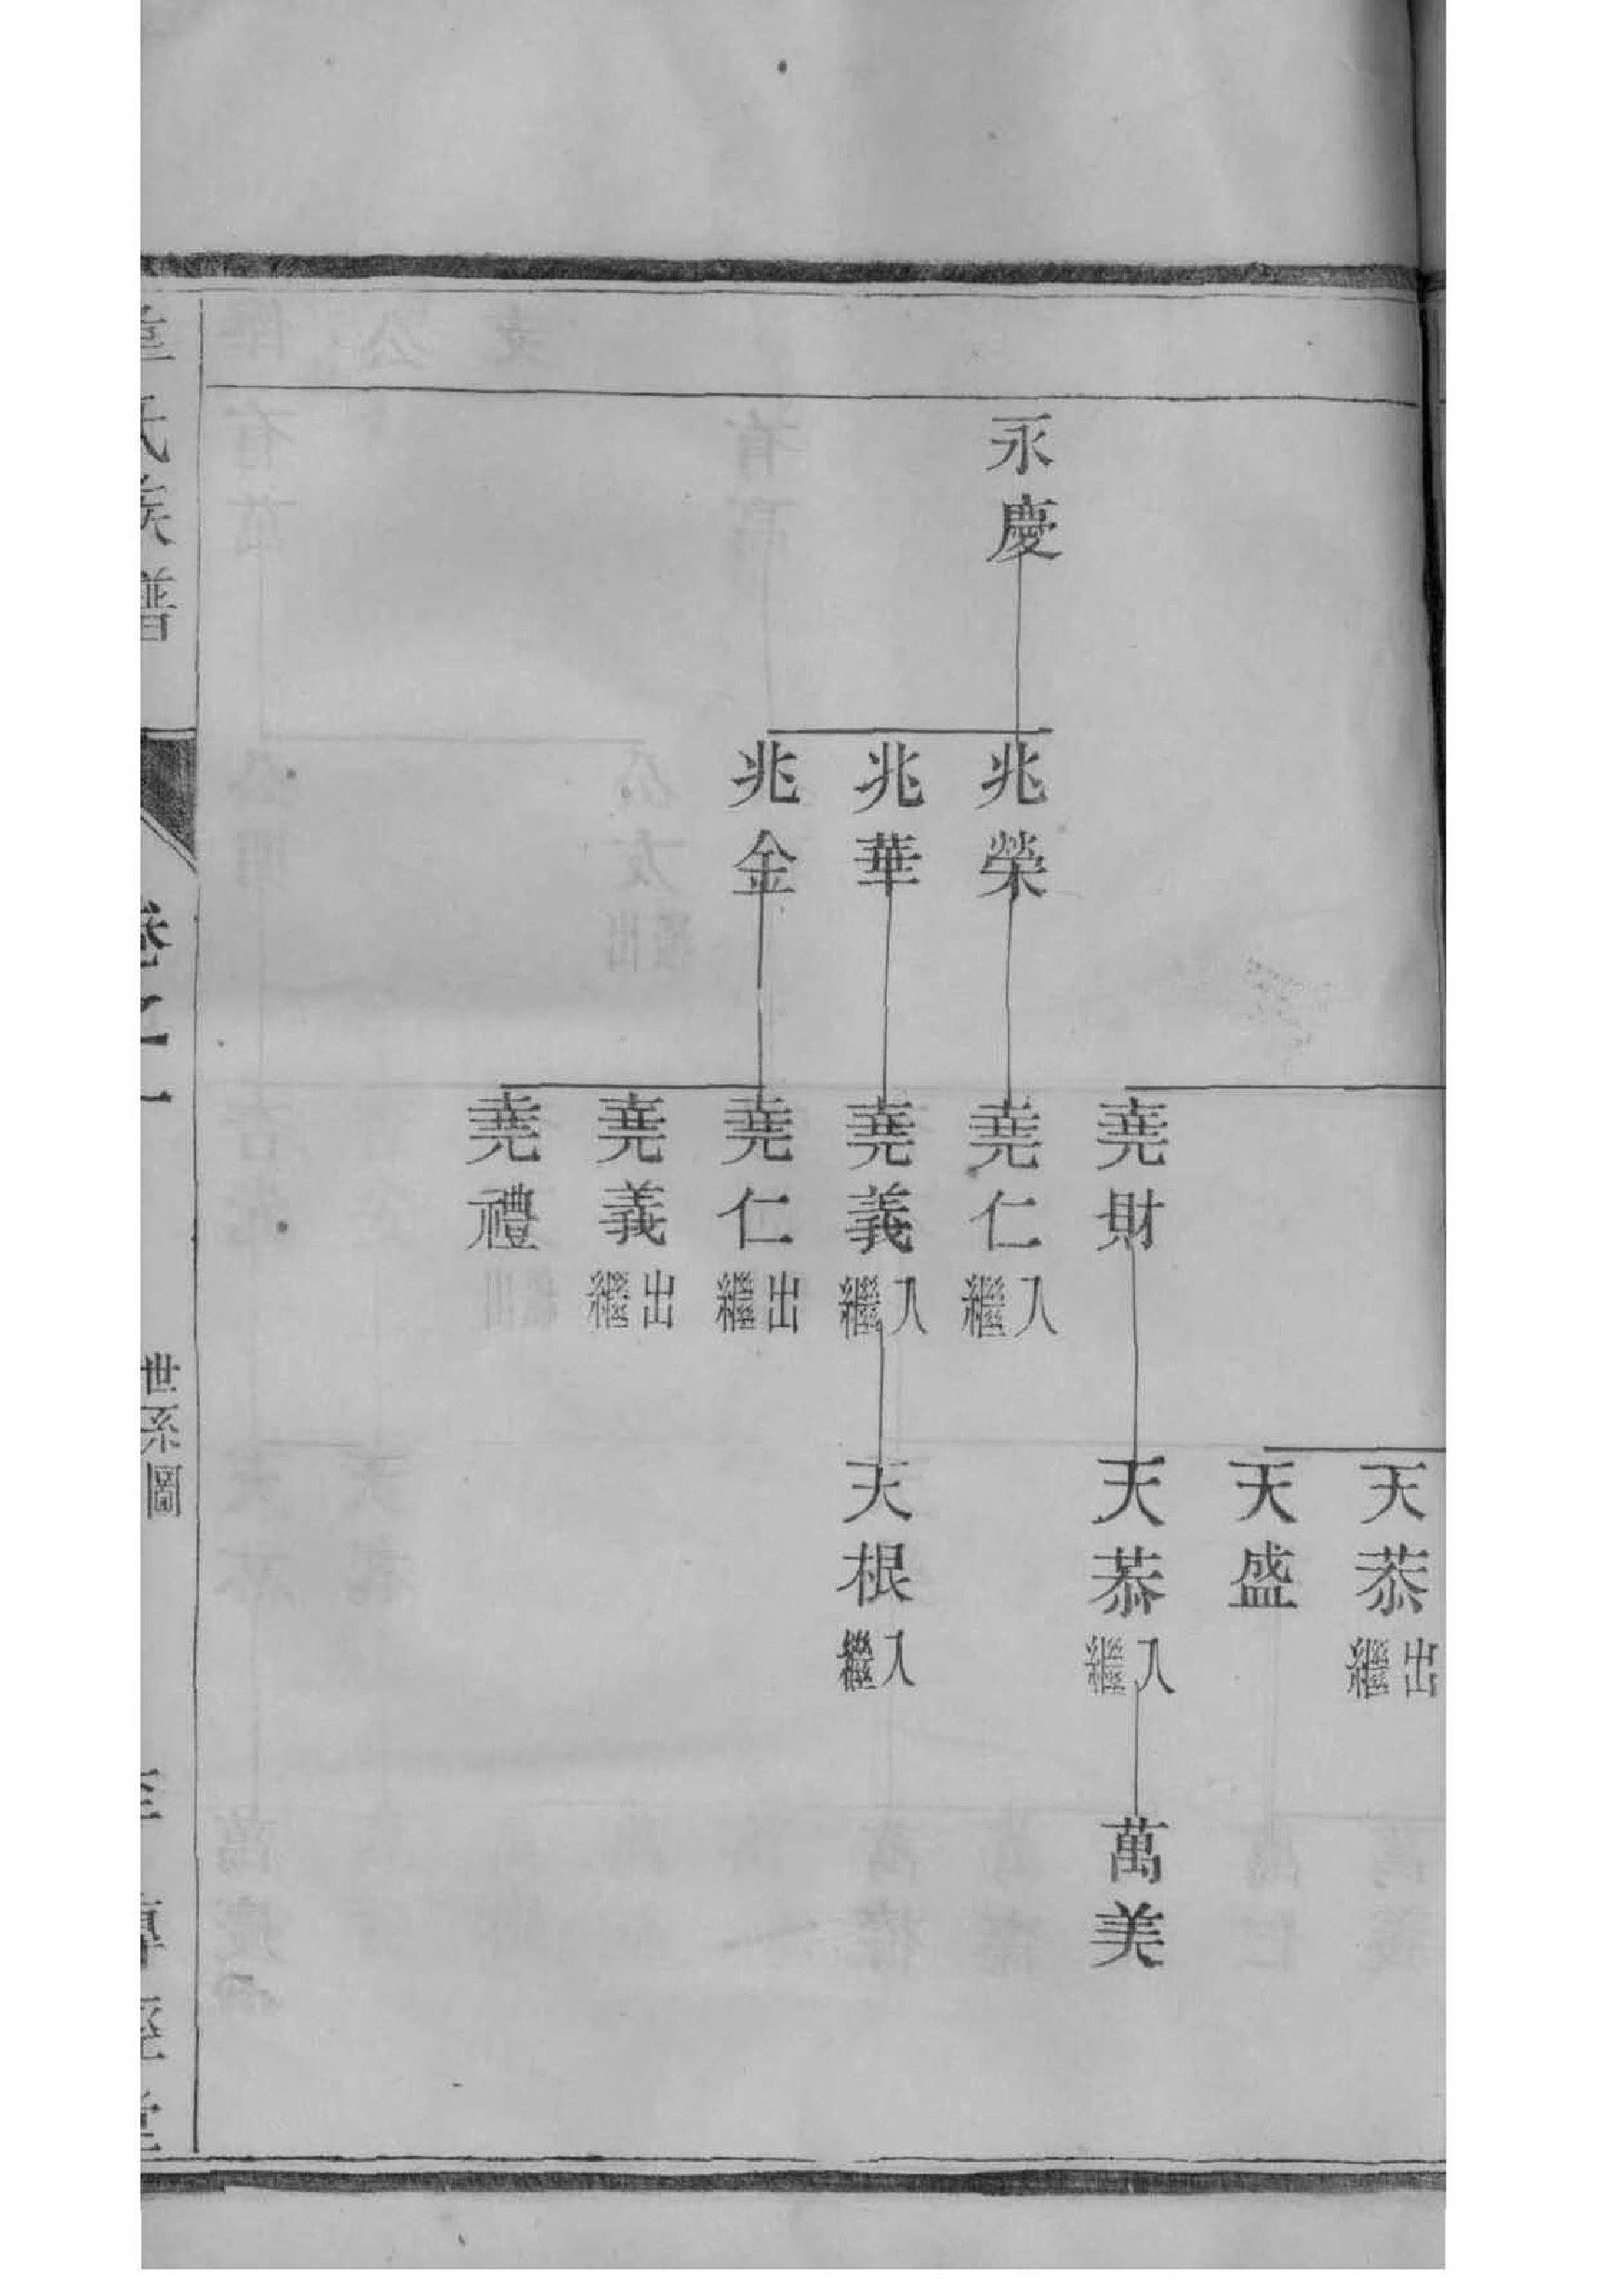 永慶
兆榮
兆華
兆金
堯財
堯仁 入繼
堯義 入繼
堯仁 出繼
堯義 出繼
堯禮
天恭 出繼
天盛
天恭 入繼
天根 入繼
萬美
氏族譜
卷之一
世系圖